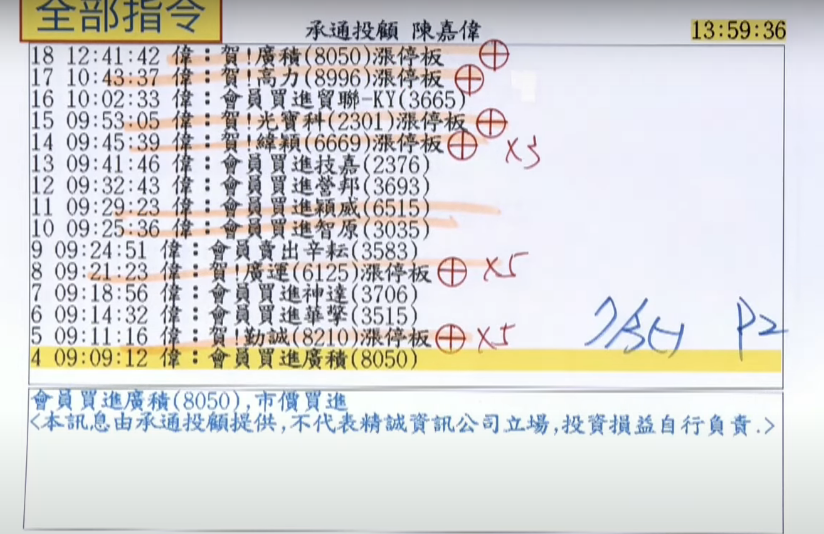 全部指令
承通投顧 陳嘉偉
13:59:36
18 12:41:42 偉：賀!廣積(8050)漲停板
17 10:43:37 偉：賀!高力(8996)漲停板
16 10:02:33 偉：會員買進貿聯-KY(3665)
15 09:53:05 偉：賀!光寶科(2301)漲停板
14 09:45:39 偉：賀!緯穎(6669)漲停板 X3
13 09:41:46 偉：會員買進技嘉(2376)
12 09:32:43 偉：會員買進營邦(3693)
11 09:29:23 偉：會員買進穎崴(6515)
10 09:25:36 偉：會員買進智原(3035)
9 09:24:51 偉：會員賣出辛耘(3583)
8 09:21:23 偉：賀!廣運(6125)漲停板 X5
7 09:18:56 偉：會員買進神達(3706)
6 09:14:32 偉：會員買進華擎(3515)
5 09:11:16 偉：賀!勤誠(8210)漲停板 X5
P2
4 09:09:12 偉：會員買進廣積(8050)
會員買進廣積(8050),市價買進
<本訊息由承通投顧提供,不代表精誠資訊公司立場,投資損益自行負責.>